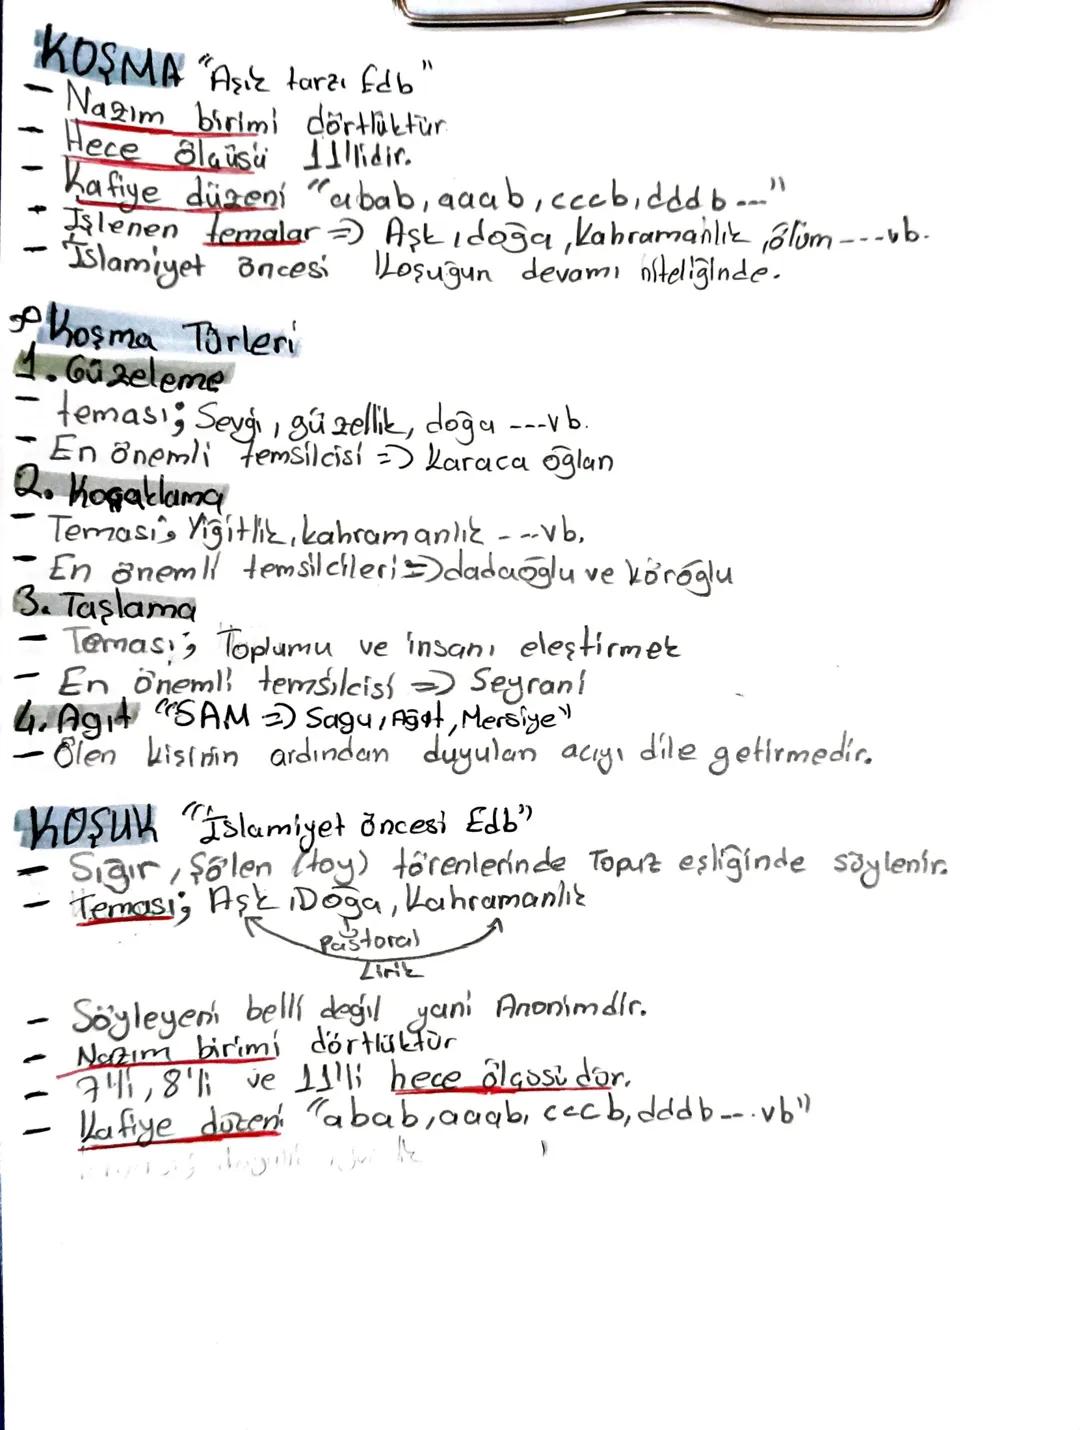 KOŞMA "Aşık tarzı Edb"
- Nazım birimi dörtlüktür
- Hece ölçüsü 11'lidir.
- Kafiye düzeni "abab, aaab, cccb, dddb ---"
- İşlenen temalar => Aşk, doğa, Kahramanlık, ölüm ---vb.
- İslamiyet öncesi Koşuğun devamı niteliğinde.
Koşma Türleri
1. Güzeleme
- teması; Sevgi, güzellik, doğa ---vb.
- En önemli temsilcisi => Karaca oğlan
2. Koçaklama
- Teması; Yiğitlik, kahramanlık ---vb.
- En önemli temsilcileri => dadaoğlu ve köroğlu
3. Taşlama
- Teması; Toplumu ve insanı eleştirmek
- En önemli temsilcisi => Seyrani
4. Agıt "SAM => Sagu, Ağıt, Mersiye"
- Ölen kişinin ardından duyulan acıyı dile getirmedir.
KOŞUK "İslamiyet öncesi Edb"
- Sığır, Şölen (toy) törenlerinde Topuz eşliğinde söylenir.
- Teması; Aşk, Doğa, Kahramanlık
Pastoral
Lirik
- Söyleyeni belli değil yani Anonimdir.
- Nazım birimi dörtlüktür
- 7'li, 8'li ve 11'li hece ölçüsüdür.
- Kafiye düzeni "abab, aaab, cccb, dddb --.vb"